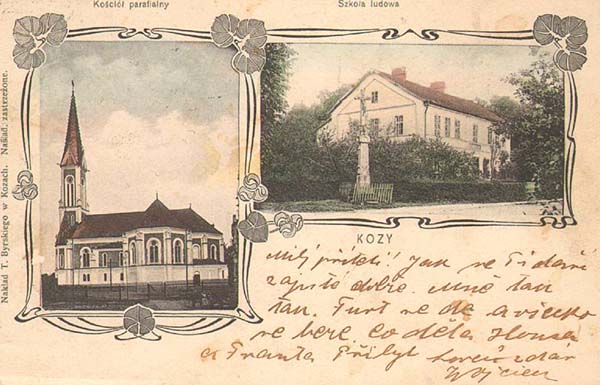 Kościół parafialny
Szkoła ludowa
Nakład T. Byrskiego w Kozach. Naślad. zastrzeżone.
KOZY
Milý příteli! Jak se Ti daří
zapiš dobře. Mně tak
tak. Furt se de a všecko
se bere. Co dělá Honza
a Franta
zdar